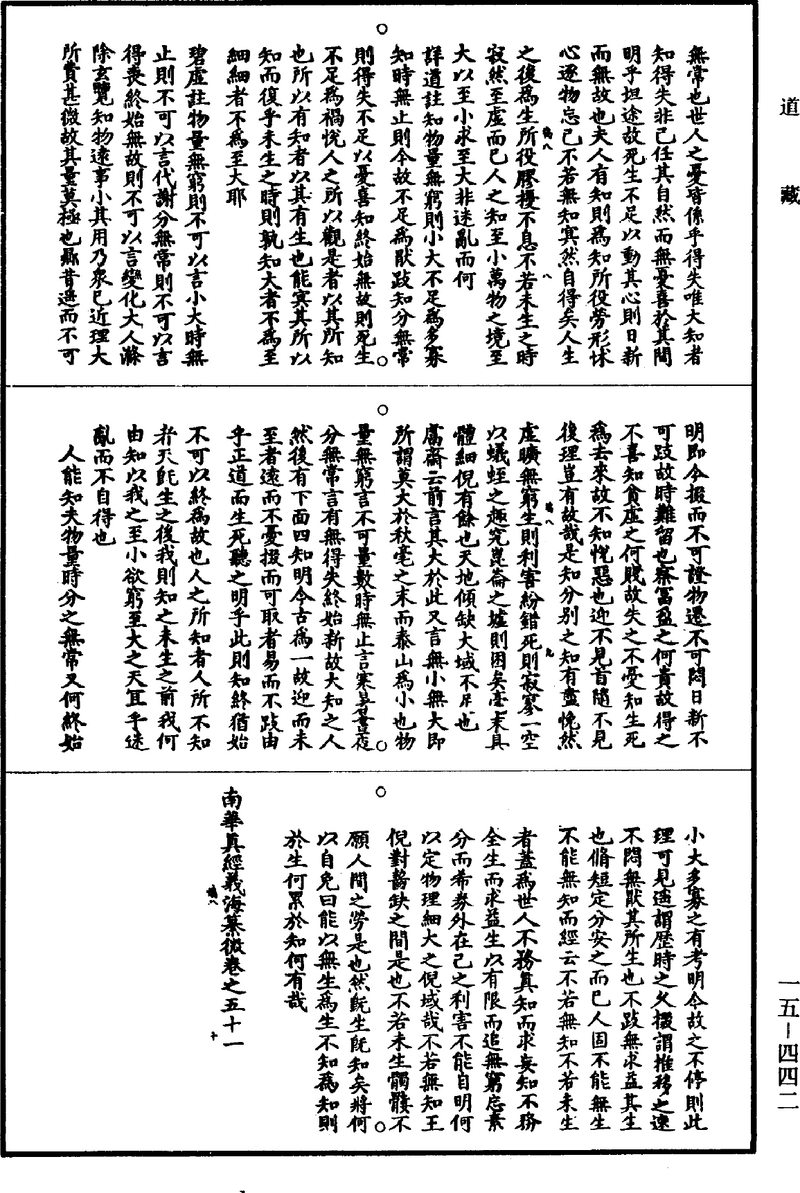 道藏
無常也世人之憂皆係乎得失唯大知者
知得失非己任其自然而無憂喜於其間
明乎坦途故死生不足以動其心則日新
而無故也夫人有知則為知所役勞形怵
心逐物忘己不若無知寞然自得矣人生
之後為生所役膠擾不息不若未生之時
寂然至虛而已人之知至小萬物之境至
大以至小求至大非迷亂而何
詳道註知物量無窮則小大不足為多寡
知時無止則今故不足為猒跂知分無常
則得失不足以憂喜知終始無故則死生
不足為禍悅人之所以觀是者以其所知
也所以有知者以其有生也能寞其所以
知而復乎未生之時則孰知大者不為至
細細者不為至大耶
碧虛註物量無窮則不可以言小大時無
止則不可以言代謝分無常則不可以言
得喪終始無故則不可以言變化大人滌
除玄覽知物遠事小其用乃衆已近理大
所費甚微故其量莫極也嚮昔遥而不可
明即今掇而不可證物還不可悶日新不
可跂故時難留也察富盈之何貴故得之
不喜知貧虛之何賤故失之不憂知生死
為去來故不知悅惡也迎不見首隨不見
後理豈有故哉是知分別之知有盡恍然
虛曠無窮生則利害紛錯死則寂寥一空
以蟻蛭之趣究崑崙之墟則困矣毫末具
體細倪有餘也天地傾缺大域不足也
鬳齋云前言其大於此又言無小無大即
所謂莫大於秋毫之末而泰山為小也物
量無窮言不可量數時無止言寒暑晝夜
分無常言有無得失終始新故大知之人
然後有下面四知明今古為一故迎而未
至者遠而不憂掇而可取者易而不跂由
乎正道而生死聽之明乎此則知終猶始
不可以終為故也人之所知者人所不知
者天旣生之後我則知之未生之前我何
由知以我之至小欲窮至大之天冝乎迷
亂而不自得也
人能知夫物量時分之無常又何終始
小大多寡之有考明今故之不停則此
理可見遥謂歷時之久掇謂推移之速
不悶無猒其所生也不跂無求益其生
也脩短定分安之而已人固不能無生
不能無知而經云不若無知不若未生
者蓋為世人不務真知而求妄知不務
全生而求益生以有限而追無窮忘素
分而希券外在己之利害不能自明何
以定物理細大之倪域哉不若無知王
倪對齧缺之間是也不若未生髑髏不
願人間之勞是也然旣生旣知矣將何
以自免曰能以無生為生不知為知則
於生何累於知何有哉
南華真經義海纂微卷之五十一
一五－四四二